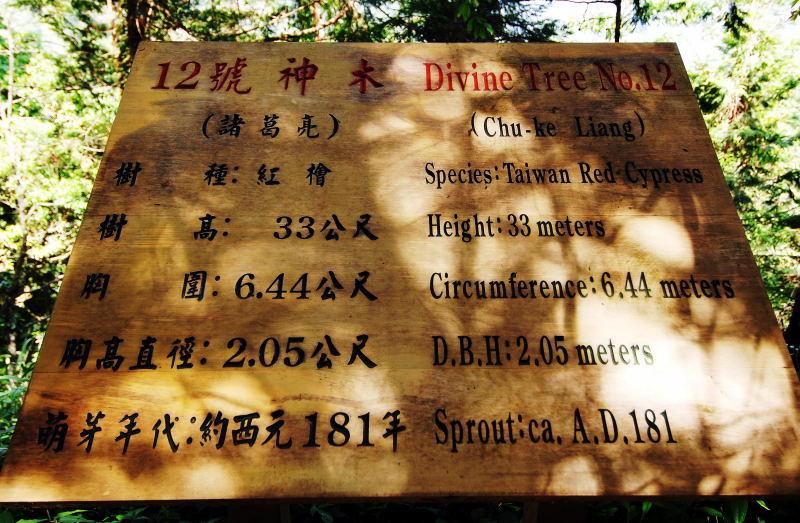 12號 神 木 Divine Tree No.12
(諸葛亮) (Chu-ke Liang)
樹 種: 紅 檜 Species: Taiwan Red Cypress
樹 高: 33公尺 Height: 33 meters
胸 圍: 6.44公尺 Circumference: 6.44 meters
胸高直徑: 2.05公尺 D.B.H: 2.05 meters
萌芽年代:約西元181年 Sprout: ca. A.D.181